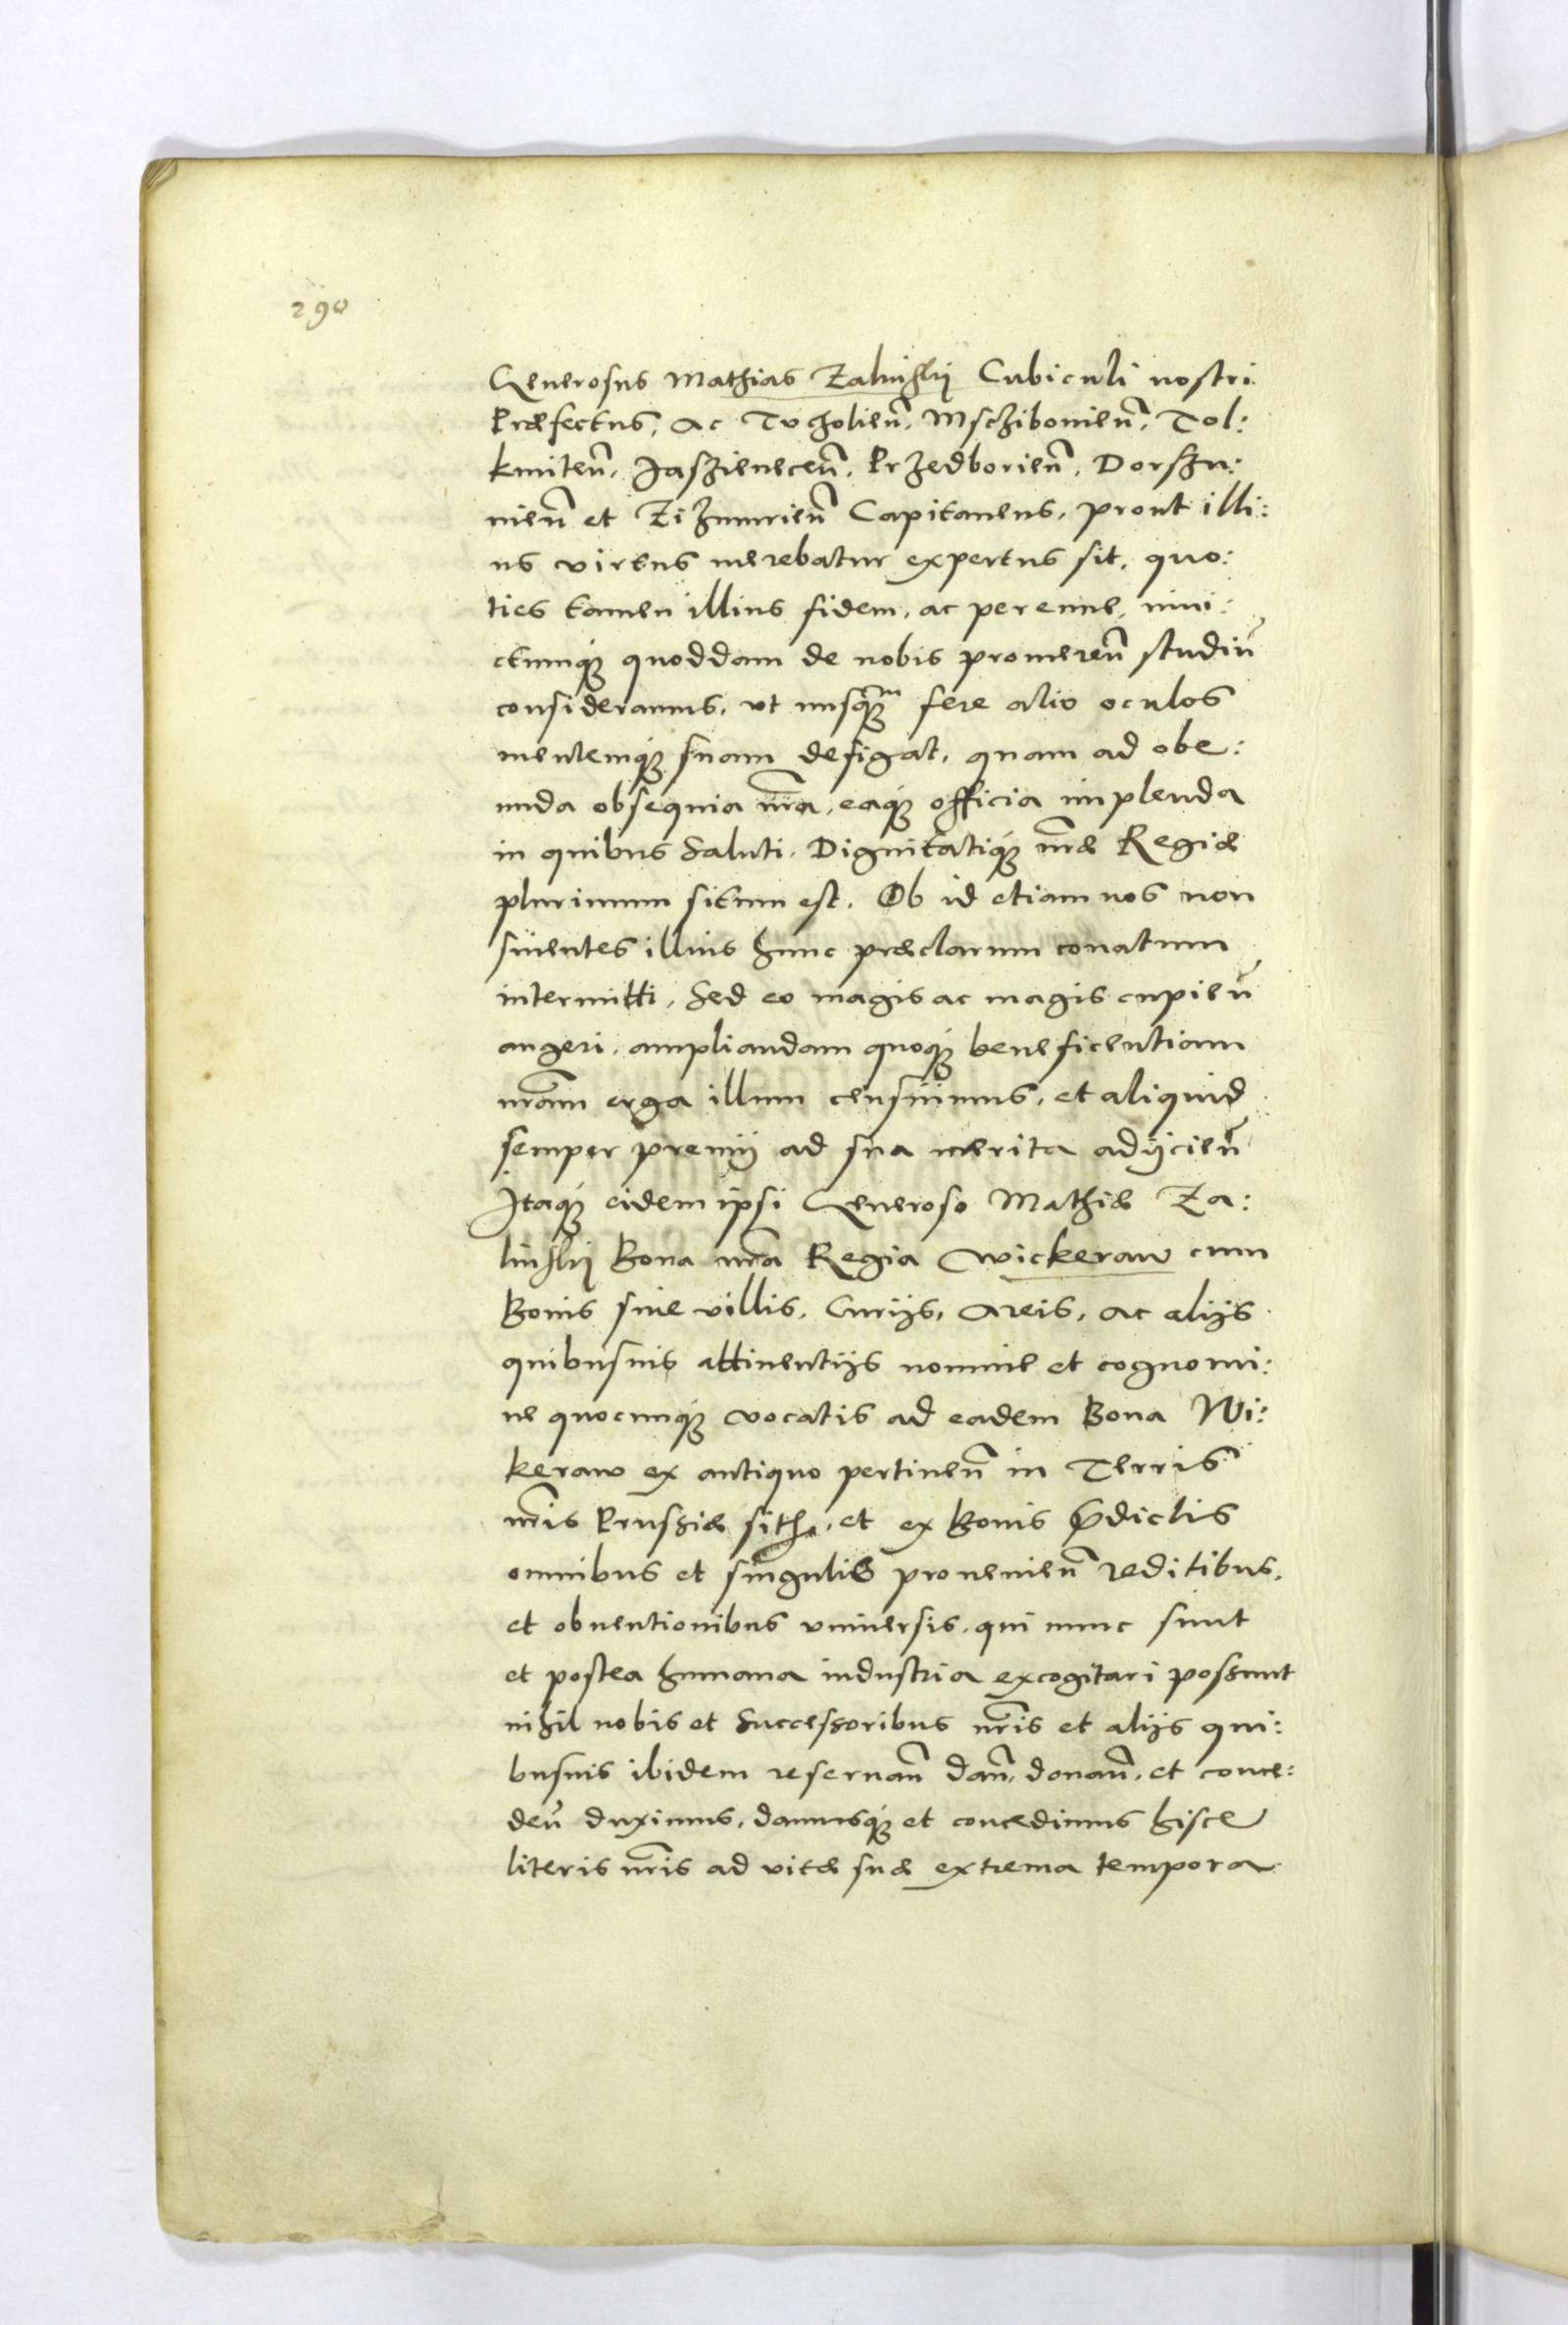 290
Generosus Mathias Zalinskij Cubiculi nostri
Præfectus, ac Tucholieñ, Mschibouieñ, Tol:
kmiteñ, Jaszieneceñ, Przedborieñ, Dorszu:
nieñ et Zizmurieñ Capitaneus, prout illi:
us virtus merebatur expertus sit, quo:
ties tamen illius fidem, ac perenne, inui:
ctumq́ꝫ quoddam de nobis promereñ studiũ
consideramus, vt nusqꝫᵐ fere alio oculos
mentemq́ꝫ suam defigat, quam ad obe:
unda obsequia nr̃a, eaq́ꝫ officia implenda
in quibus Saluti, Dignitatiq́ꝫ nr̃æ Regiæ
plurimum situm est. Ob id etiam nos non
sinentes illius hunc præclarum conatum
intermitti, Sed eo magis ac magis cupieñ
augeri, ampliandam quoq́ꝫ beneficentiam
nr̃am erga illum censuimus, et aliquid
semper premij ad sua merita adijcieñ
Itaq́ꝫ eidem ipsi Generoso Mathiæ Za:
linskij Bona nr̃a Regia Wickeraw cum
Bonis siue villis, Curijs, Areis, ac alijs
quibusuis attinentijs nomine et cognomi:
ne quocunq́ꝫ vocatis ad eadem Bona Wi:
keraw ex antiquo pertineñ in Terris
nr̃is Prussiæ sitħ, et ex Bonis p̃dictis
omnibus et singulis prouenieñ reditibus,
et obuentionibus vniuersis, qui nunc sunt
et postea humana industria excogitari possunt
nihil nobis et Successoribus nr̃is et alijs qui:
busuis ibidem reseruañ dañ, donañ, et conce:
deñ duximus, damusq́ꝫ et concedimus hisce
literis nr̃is ad vitæ suæ extrema tempora